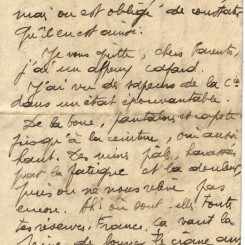 mais on est obligé de constater
qu'il en est ainsi.
Je vous quitte, chers Parents,
j'ai un affreux cafard.
J'ai vu des sapeurs de la Cie
dans un état épouvantable.
De la boue, pantalons et capote
jusqu'à la ceinture, oui aussi
haut. Les mines pâles, harassés
par la fatigue et la douleur,
puis on ne nous relève pas
encore. Ah! où sont-elles toute
les réserves, France. Ça vaut la
peine de